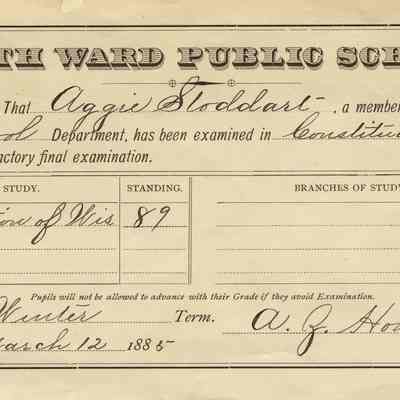 TH WARD PUBLIC SCH
That Aggie Stoddart, a member
ol Department, has been examined in Constitu
actory final examination.
STUDY. STANDING. BRANCHES OF STUDY
ion of Wis 89
Pupils will not be allowed to advance with their Grade if they avoid Examination.
Winter Term. A. Z. Ho
March 12 1885